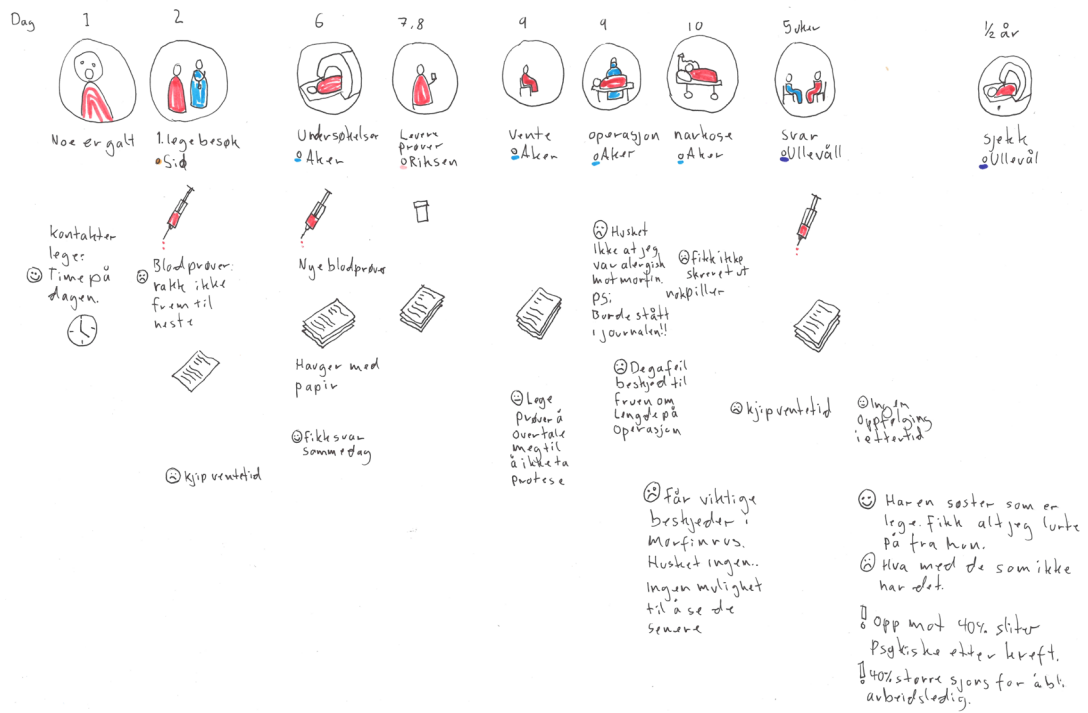 Dag
1
2
6
7,8
9
9
10
5 uker
1/2 år
Noe er galt
1. legebesøk
Sio
Undersøkelser
Aker
Levere
prøver
Riksen
Vente
Aker
operasjon
Aker
narkose
Aker
Svar
Ullevåll
sjekk
Ullevål
Kontakter
lege:
Time på
dagen.
Blodprøver:
rakk ikke
frem til
neste
kjip ventetid
Nye blodprøver
Hauger med
papir
fikk svar
samme dag
Lege
prøver å
overtale
meg til
å ikke ta
protese
Husket
ikke at jeg
var allergisk
mot morfin.
PS:
Burde stått
i journalen!!
De ga feil
beskjed til
fruen om
Lengde på
operasjon
fikk ikke
skrevet ut
nok piller
Får viktige
beskjeder i
Morfinrus.
Husket ingen..
Ingen mulighet
til å se de
senere
kjip ventetid
Ingen
oppfølging
i ettertid
Har en søster som er
lege. Fikk alt jeg lurte
på fra hun.
Hva med de som ikke
har det.
! Opp mot 40% sliter
Psykiske etter kreft.
! 40% større sjans for å bli
arbeidsledig.